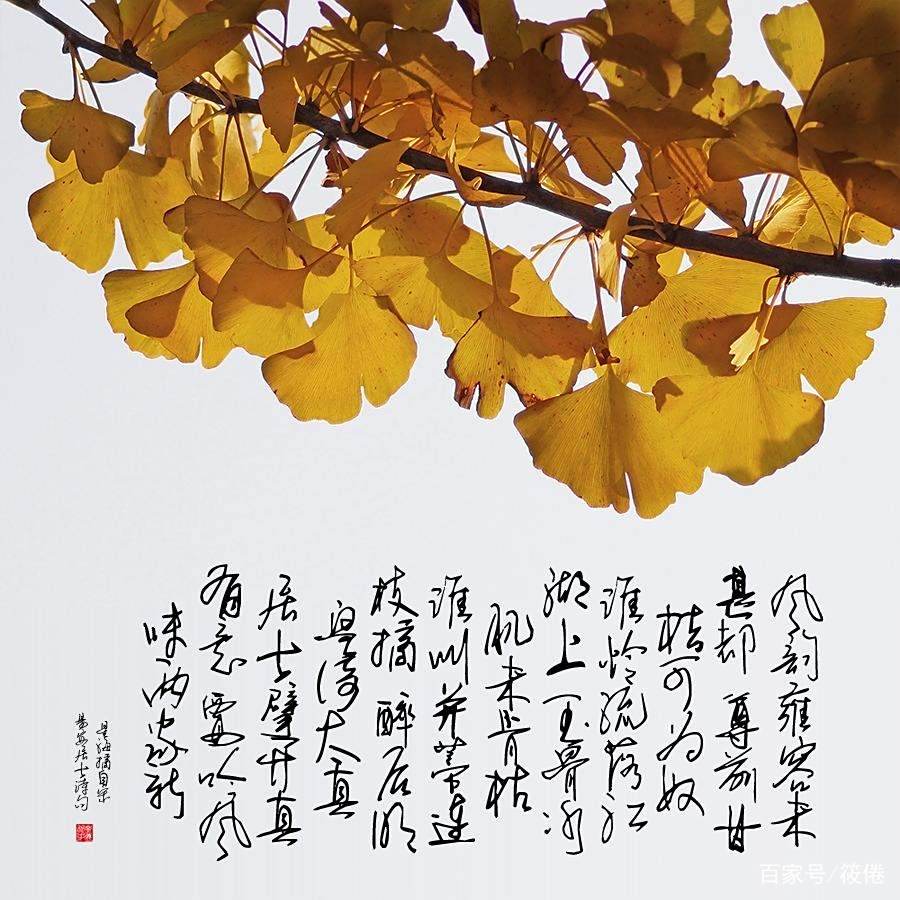 风韵雍容未
甚都 尊前甘
桔可为奴
谁怜流落江
湖上 玉骨冰
肌未肯枯
谁叫并蒂连
枝摘 醉后明
皇倚太真
居士擘开真
有意 要吟风
味两家新
摘自宋
易安居士诗句
百家号/筱倦